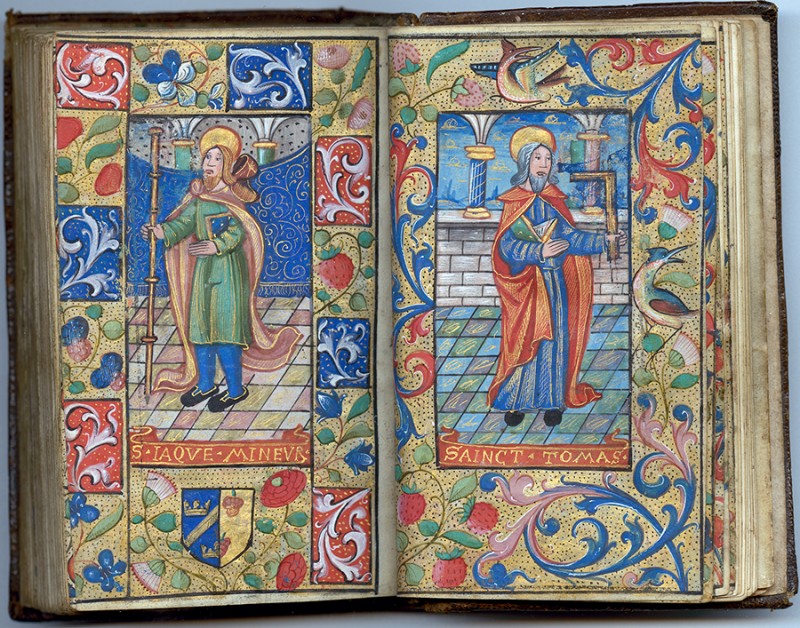 S · IAQVE · MINEVR
SAINCT · TOMAS ·